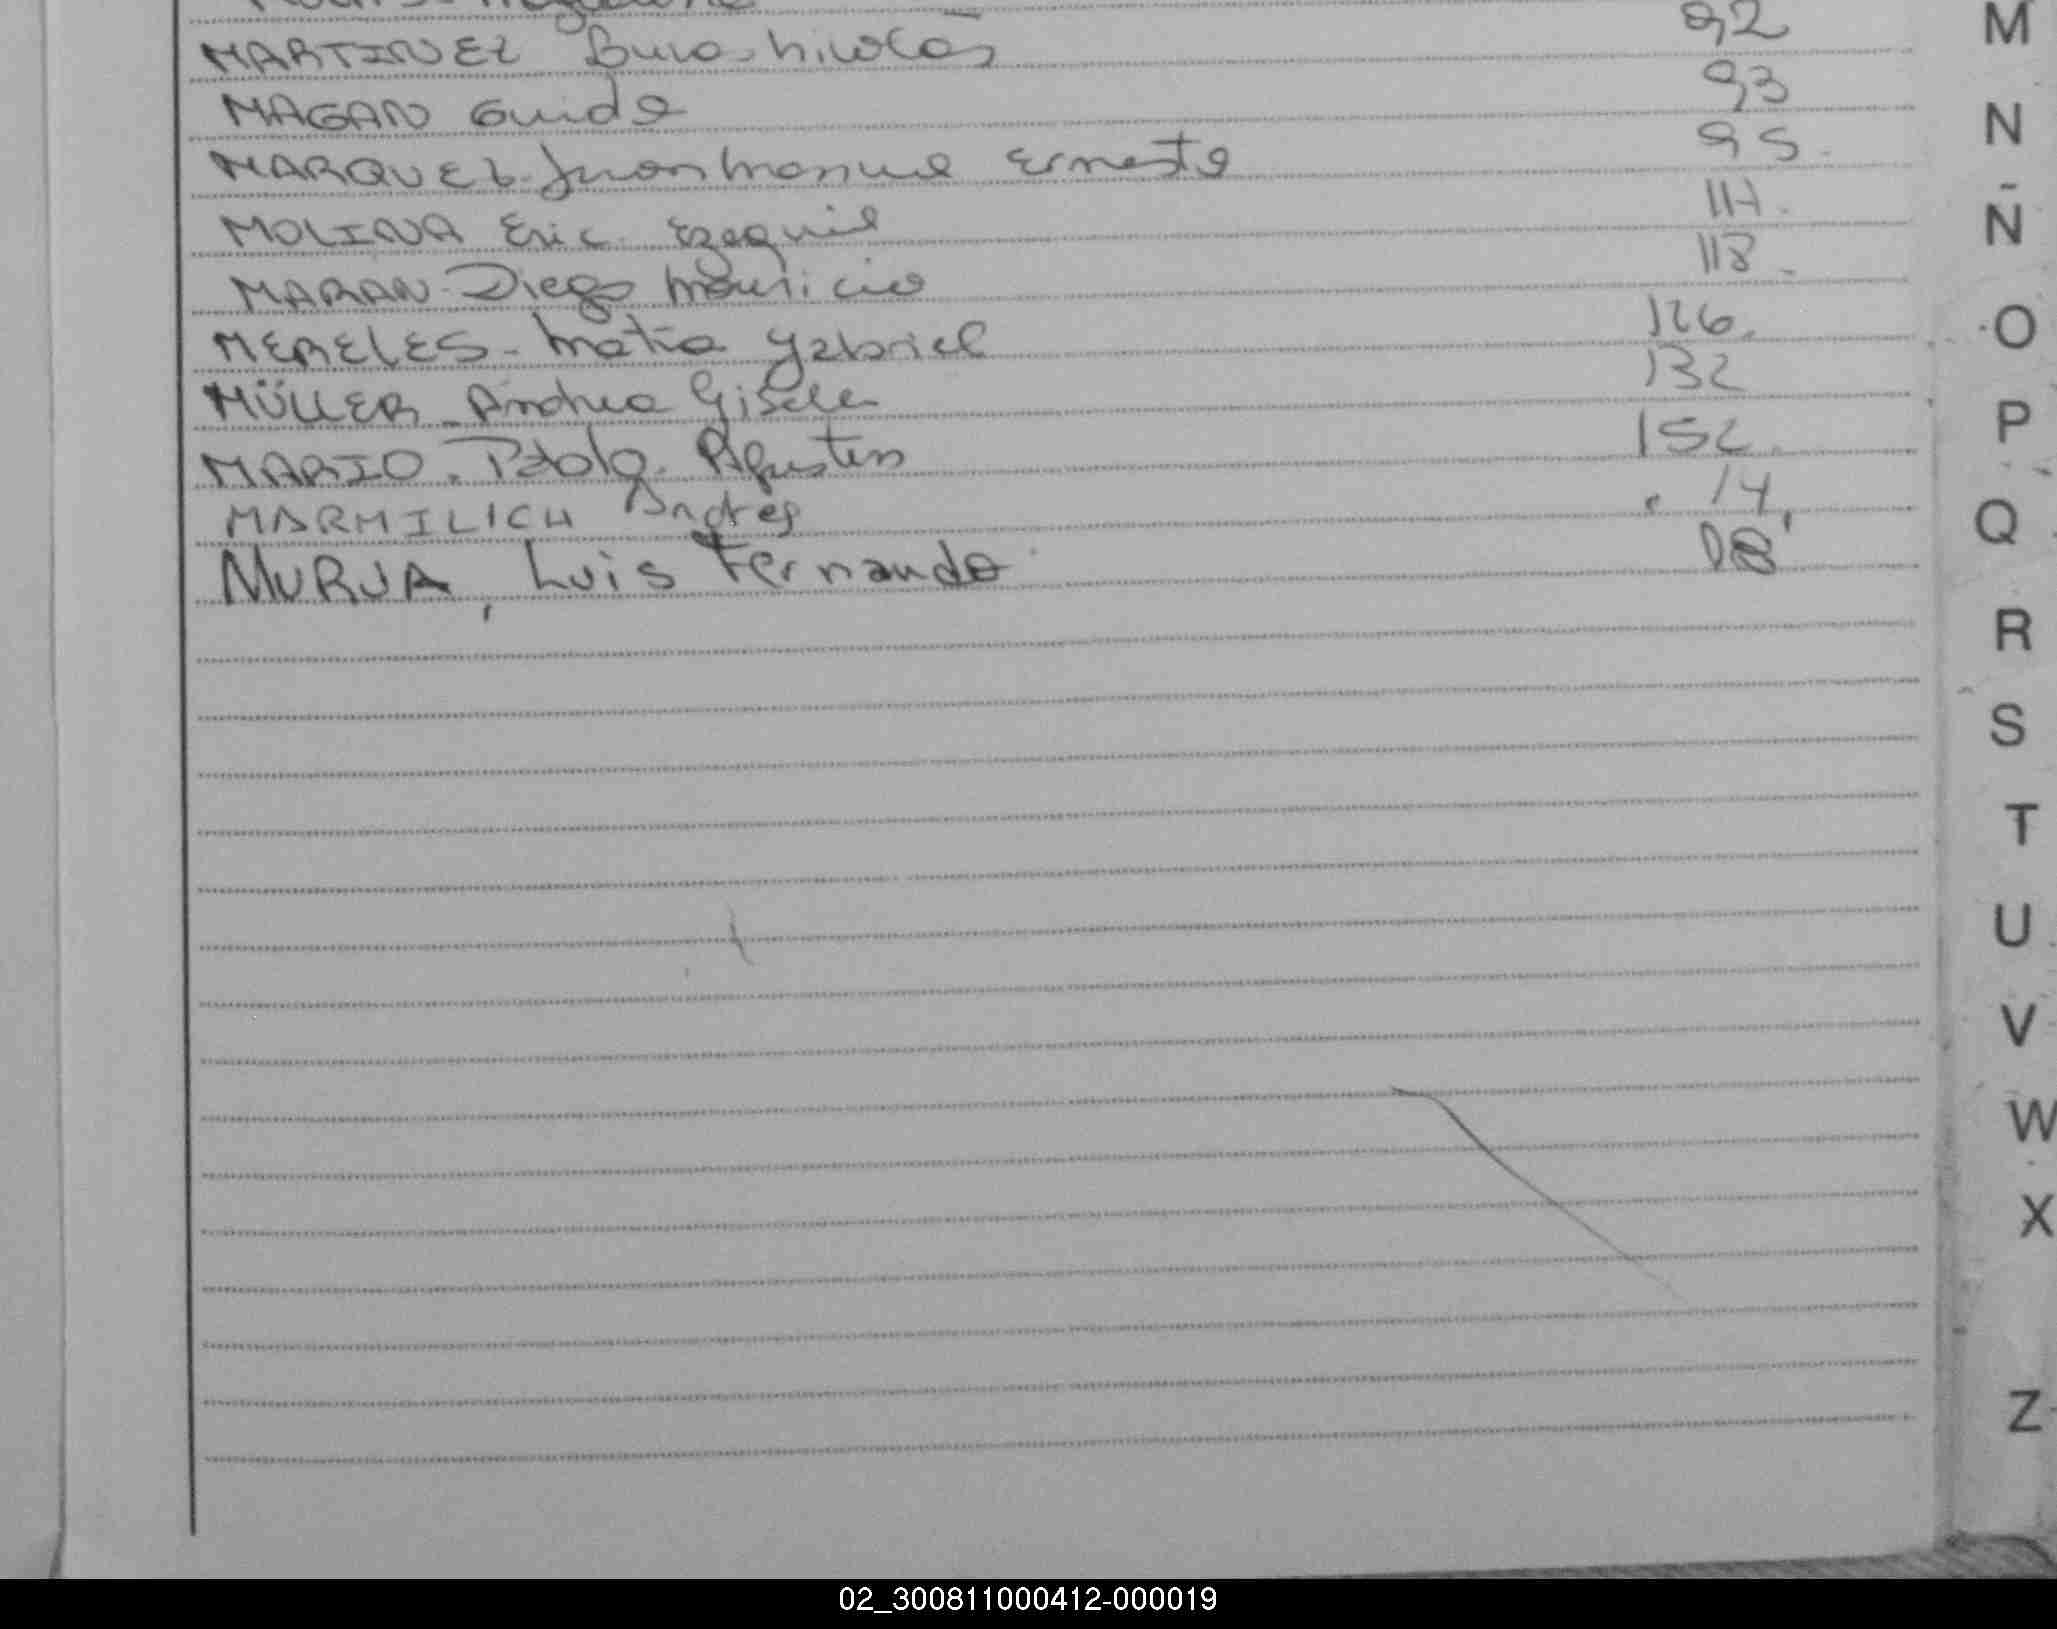 MARTINEZ Nicolás 92
MAGAN Guido 93
MARQUEZ - Juan Manuel Ernesto 95
MOLINA Eric Ezequiel 114
MARAN - Diego Mauricio 118
MERELES - Matia Gabriel 126
MÜLLER - Andrea Gisela 132
MARIO - Pablo Agustin 152
MARMILICH Andres 14
MURJA, Luis Fernando 18
M
N
Ñ
O
P
Q
R
S
T
U
V
W
X
Z
02_300811000412-000019